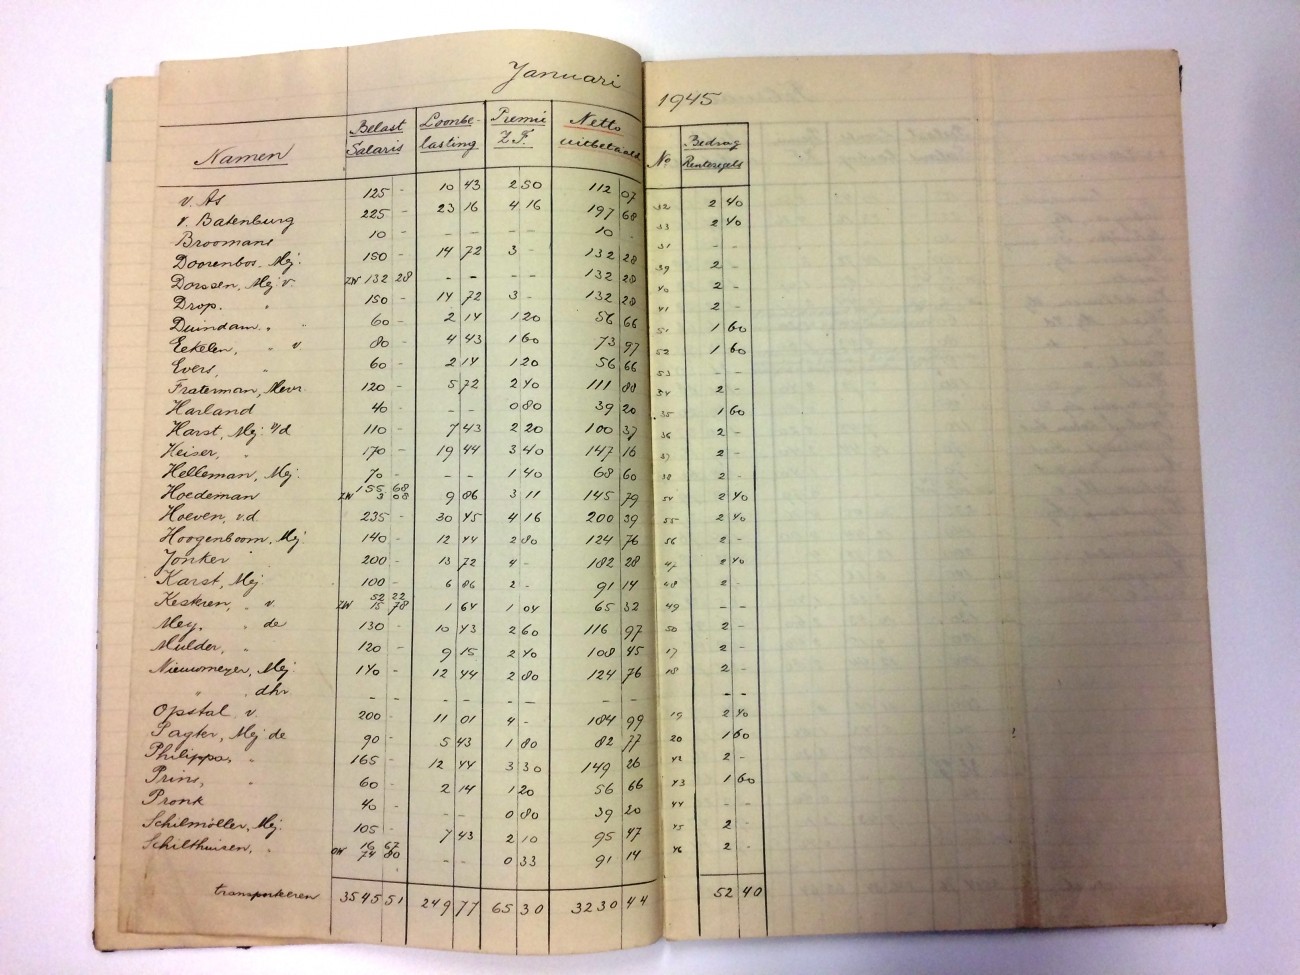 Januari 1945
Namen Belast Salaris Loonbe-lasting Premie Z.F. Netto uitbetaald No Bedrag Renteregels
v. As 125 - 10 43 2 50 112 07 32 2 40
v. Batenburg 225 - 23 16 4 16 197 68 33 2 40
Broomans 10 - - - - - 10 - 31 - -
Doorenbos, Mej. 150 - 14 72 3 - 132 28 39 2 -
Dorssen, Mej. v. ZW 132 28 - - - - 132 28 40 2 -
Drop, " 150 - 14 72 3 - 132 28 41 2 -
Duindam, " " 60 - 2 14 1 20 56 66 51 1 60
Eekelen, " v. 80 - 4 43 1 60 73 97 52 1 60
Evers, " 60 - 2 14 1 20 56 66 53 - -
Fraterman, Mevr. 120 - 5 72 2 40 111 88 34 2 -
Harland 40 - - - 0 80 39 20 35 1 60
Harst, Mej. v/d 110 - 7 43 2 20 100 37 36 2 -
Heiser, " 170 - 19 44 3 40 147 16 37 2 -
Helleman, Mej. 70 - - - 1 40 68 60 38 2 -
Hoedeman 155 68 ZW 3 08 9 86 3 11 145 79 54 2 40
Hoeven, v.d. 235 - 30 45 4 16 200 39 55 2 40
Hoogenboom, Mej. 140 - 12 44 2 80 124 76 56 2 -
Jonker 200 - 13 72 4 - 182 28 47 2 40
Karst, Mej. 100 - 6 86 2 - 91 14 48 2 -
Keskren, " v. 52 22 ZW 15 78 1 64 1 04 65 32 49 - -
Mey, " de 130 - 10 43 2 60 116 97 50 2 -
Mulder, " 120 - 9 15 2 40 108 45 17 2 -
Nieuwmeyer, Mej. 140 - 12 44 2 80 124 76 18 2 -
" , dhr. - - - - - - - - - -
Opstal v. 200 - 11 01 4 - 184 99 19 2 40
Pagter, Mej. de 90 - 5 43 1 80 82 77 20 1 60
Philippo, " 165 - 12 44 3 30 149 26 42 2 -
Prins, " 60 - 2 14 1 20 56 66 43 1 60
Pronk 40 - - - 0 80 39 20 44 - -
Schilmöller, Mej. 105 - 7 43 2 10 95 47 45 2 -
Schilthuisen, " 16 67 OW 74 80 - - 0 33 91 14 46 2 -
transporteren 3545 51 249 77 65 30 3230 44 52 40